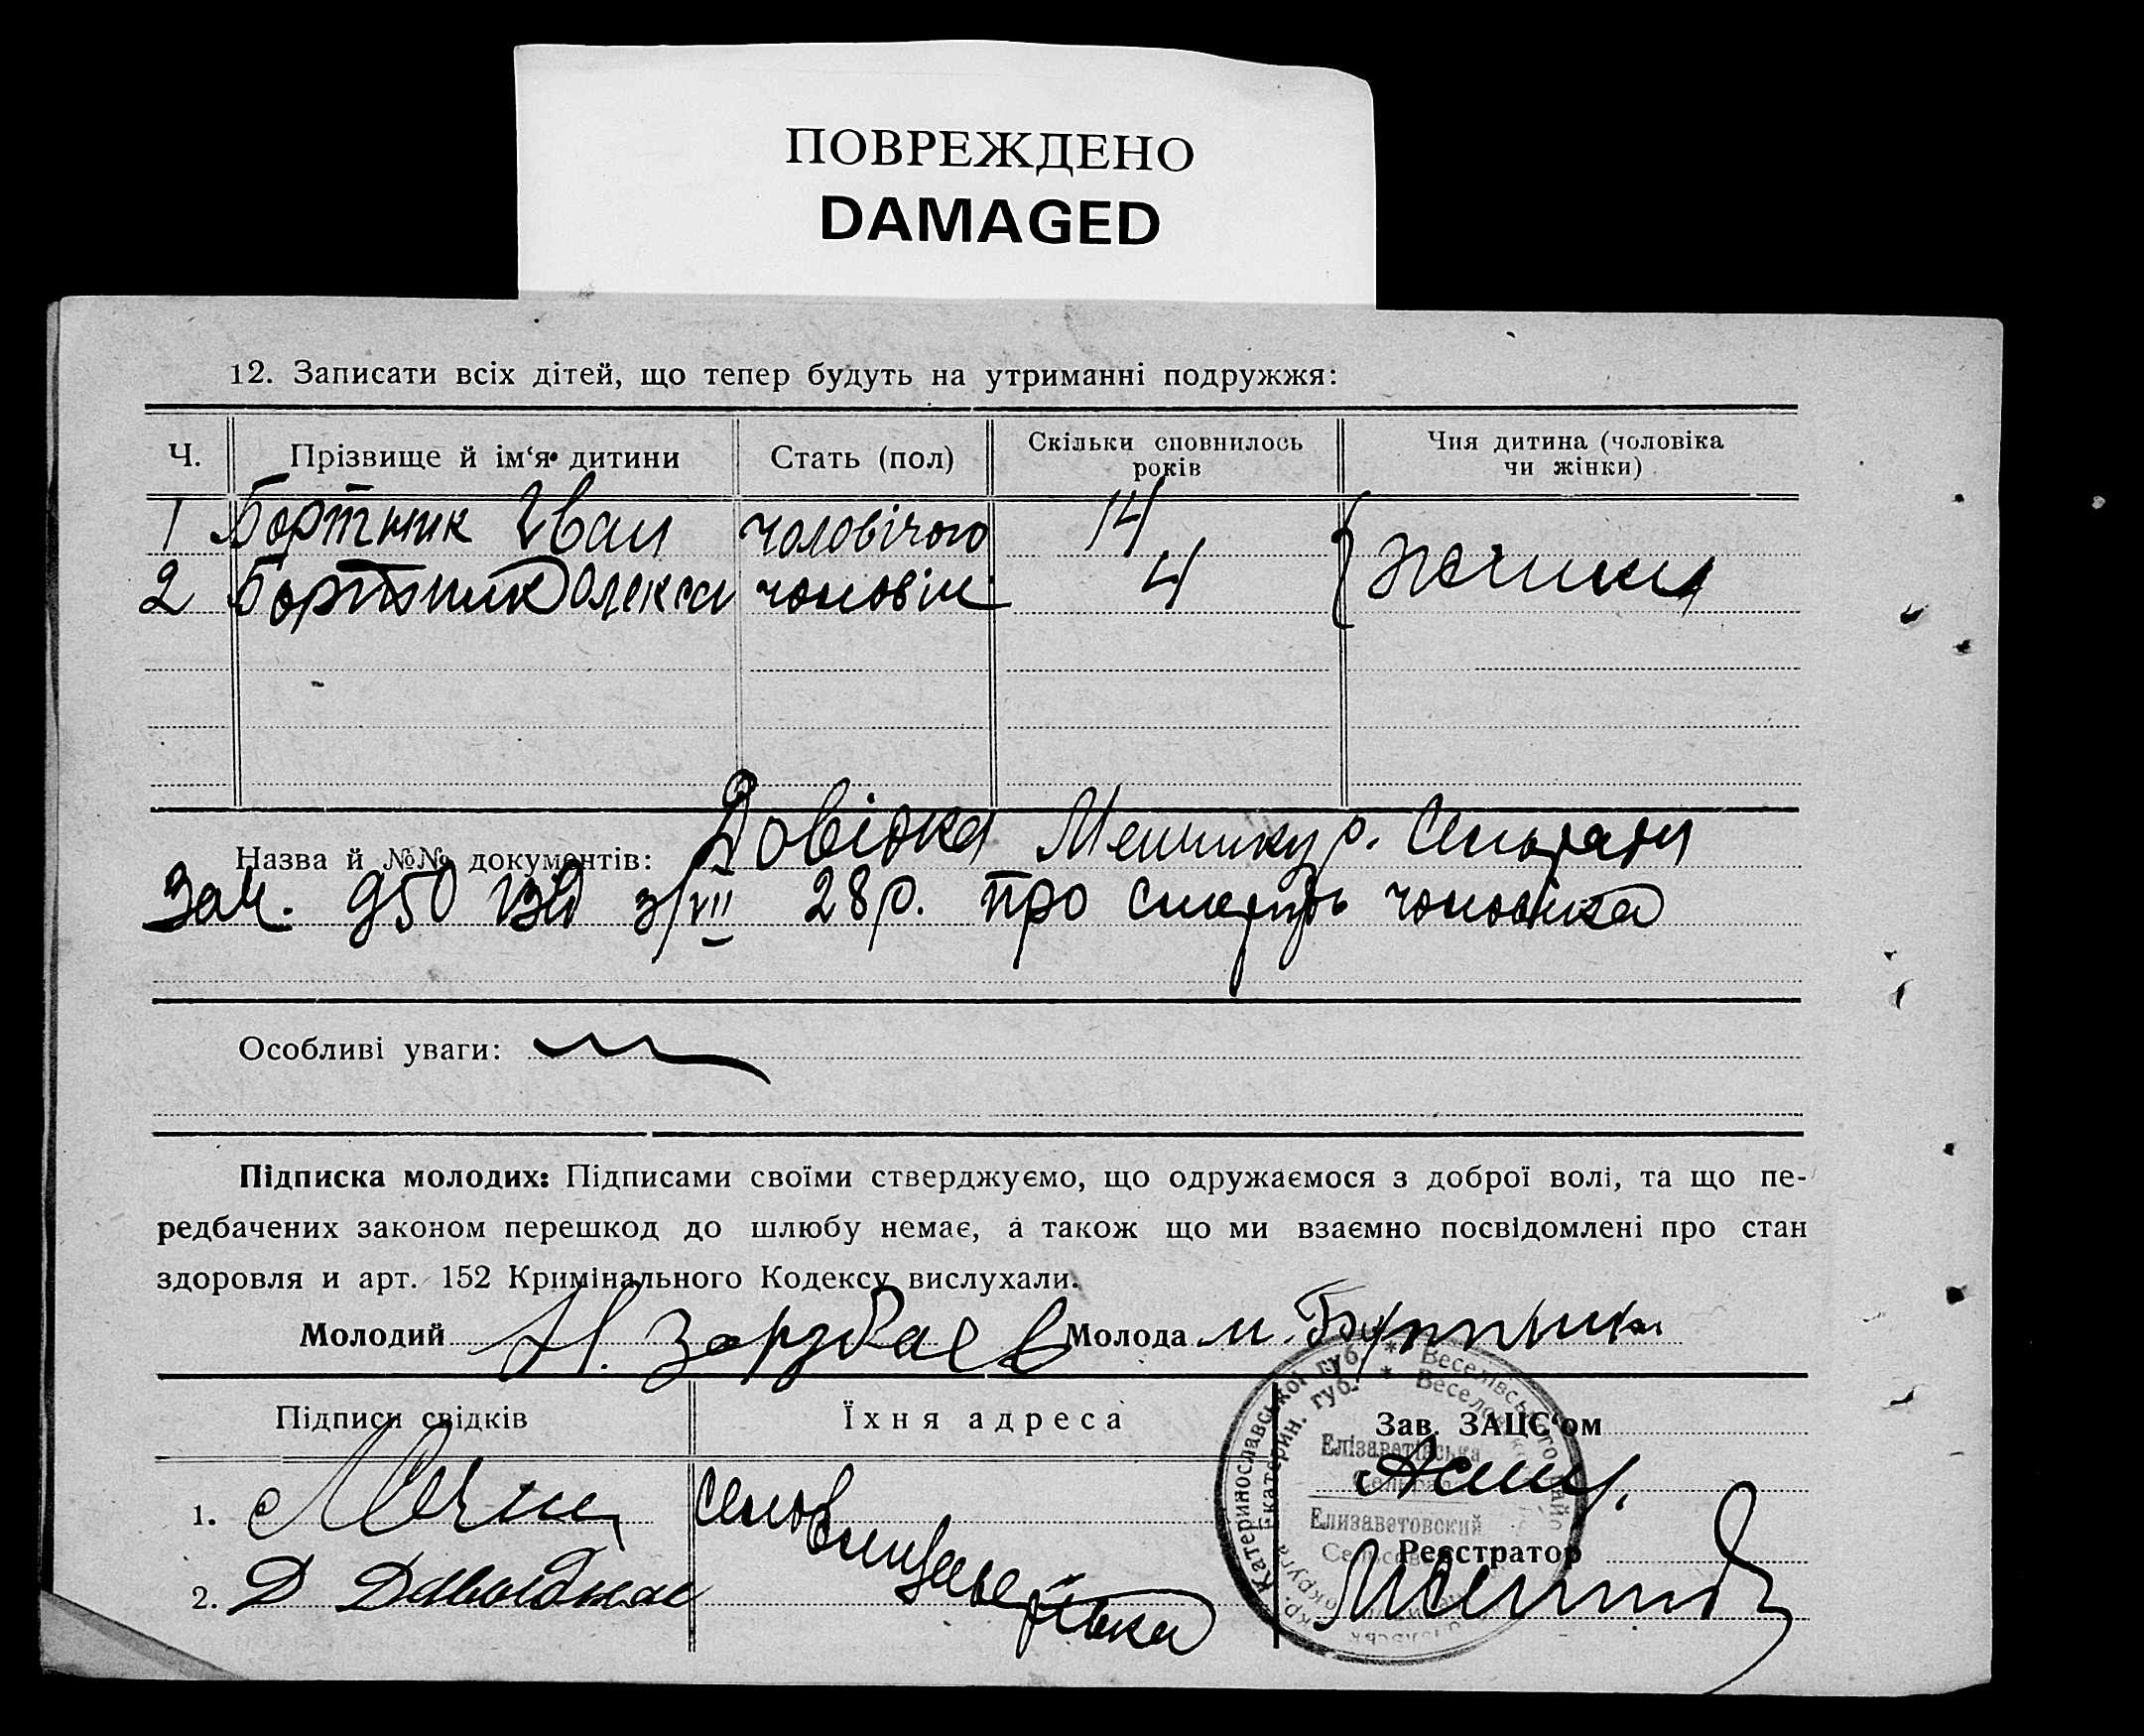 ПОВРЕЖДЕНО
DAMAGED
12. Записати всіх дітей, що тепер будуть на утриманні подружжя:
Ч. Прізвище й ім‘я дитини Стать (пол) Скільки сповнилось років Чия дитина (чоловіка чи жінки)
1 Бортник Іван чоловічого 14 Жінки
2 Бортник Олекса чоловіч 4
Назва й №№ документів: Довідка Сільради
за ч. 950 від 3/VII 28 р. про смерть чоловіка
Особливі уваги:
Підписка молодих: Підписами своїми стверджуємо, що одружаємося з доброї волі, та що пе-
редбачених законом перешкод до шлюбу немає, а також що ми взаємно посвідомлені про стан
здоровля и арт. 152 Кримінального Кодексу вислухали.
Молодий Молода
Підписи свідків Їхня адреса Зав. ЗАЦС‘ом
1. село
2.
Реєстратор
Катеринославської губ. * Веселівського
Екатерин. губ. *
Елізаветівська
Сельрада
Елизаветовский